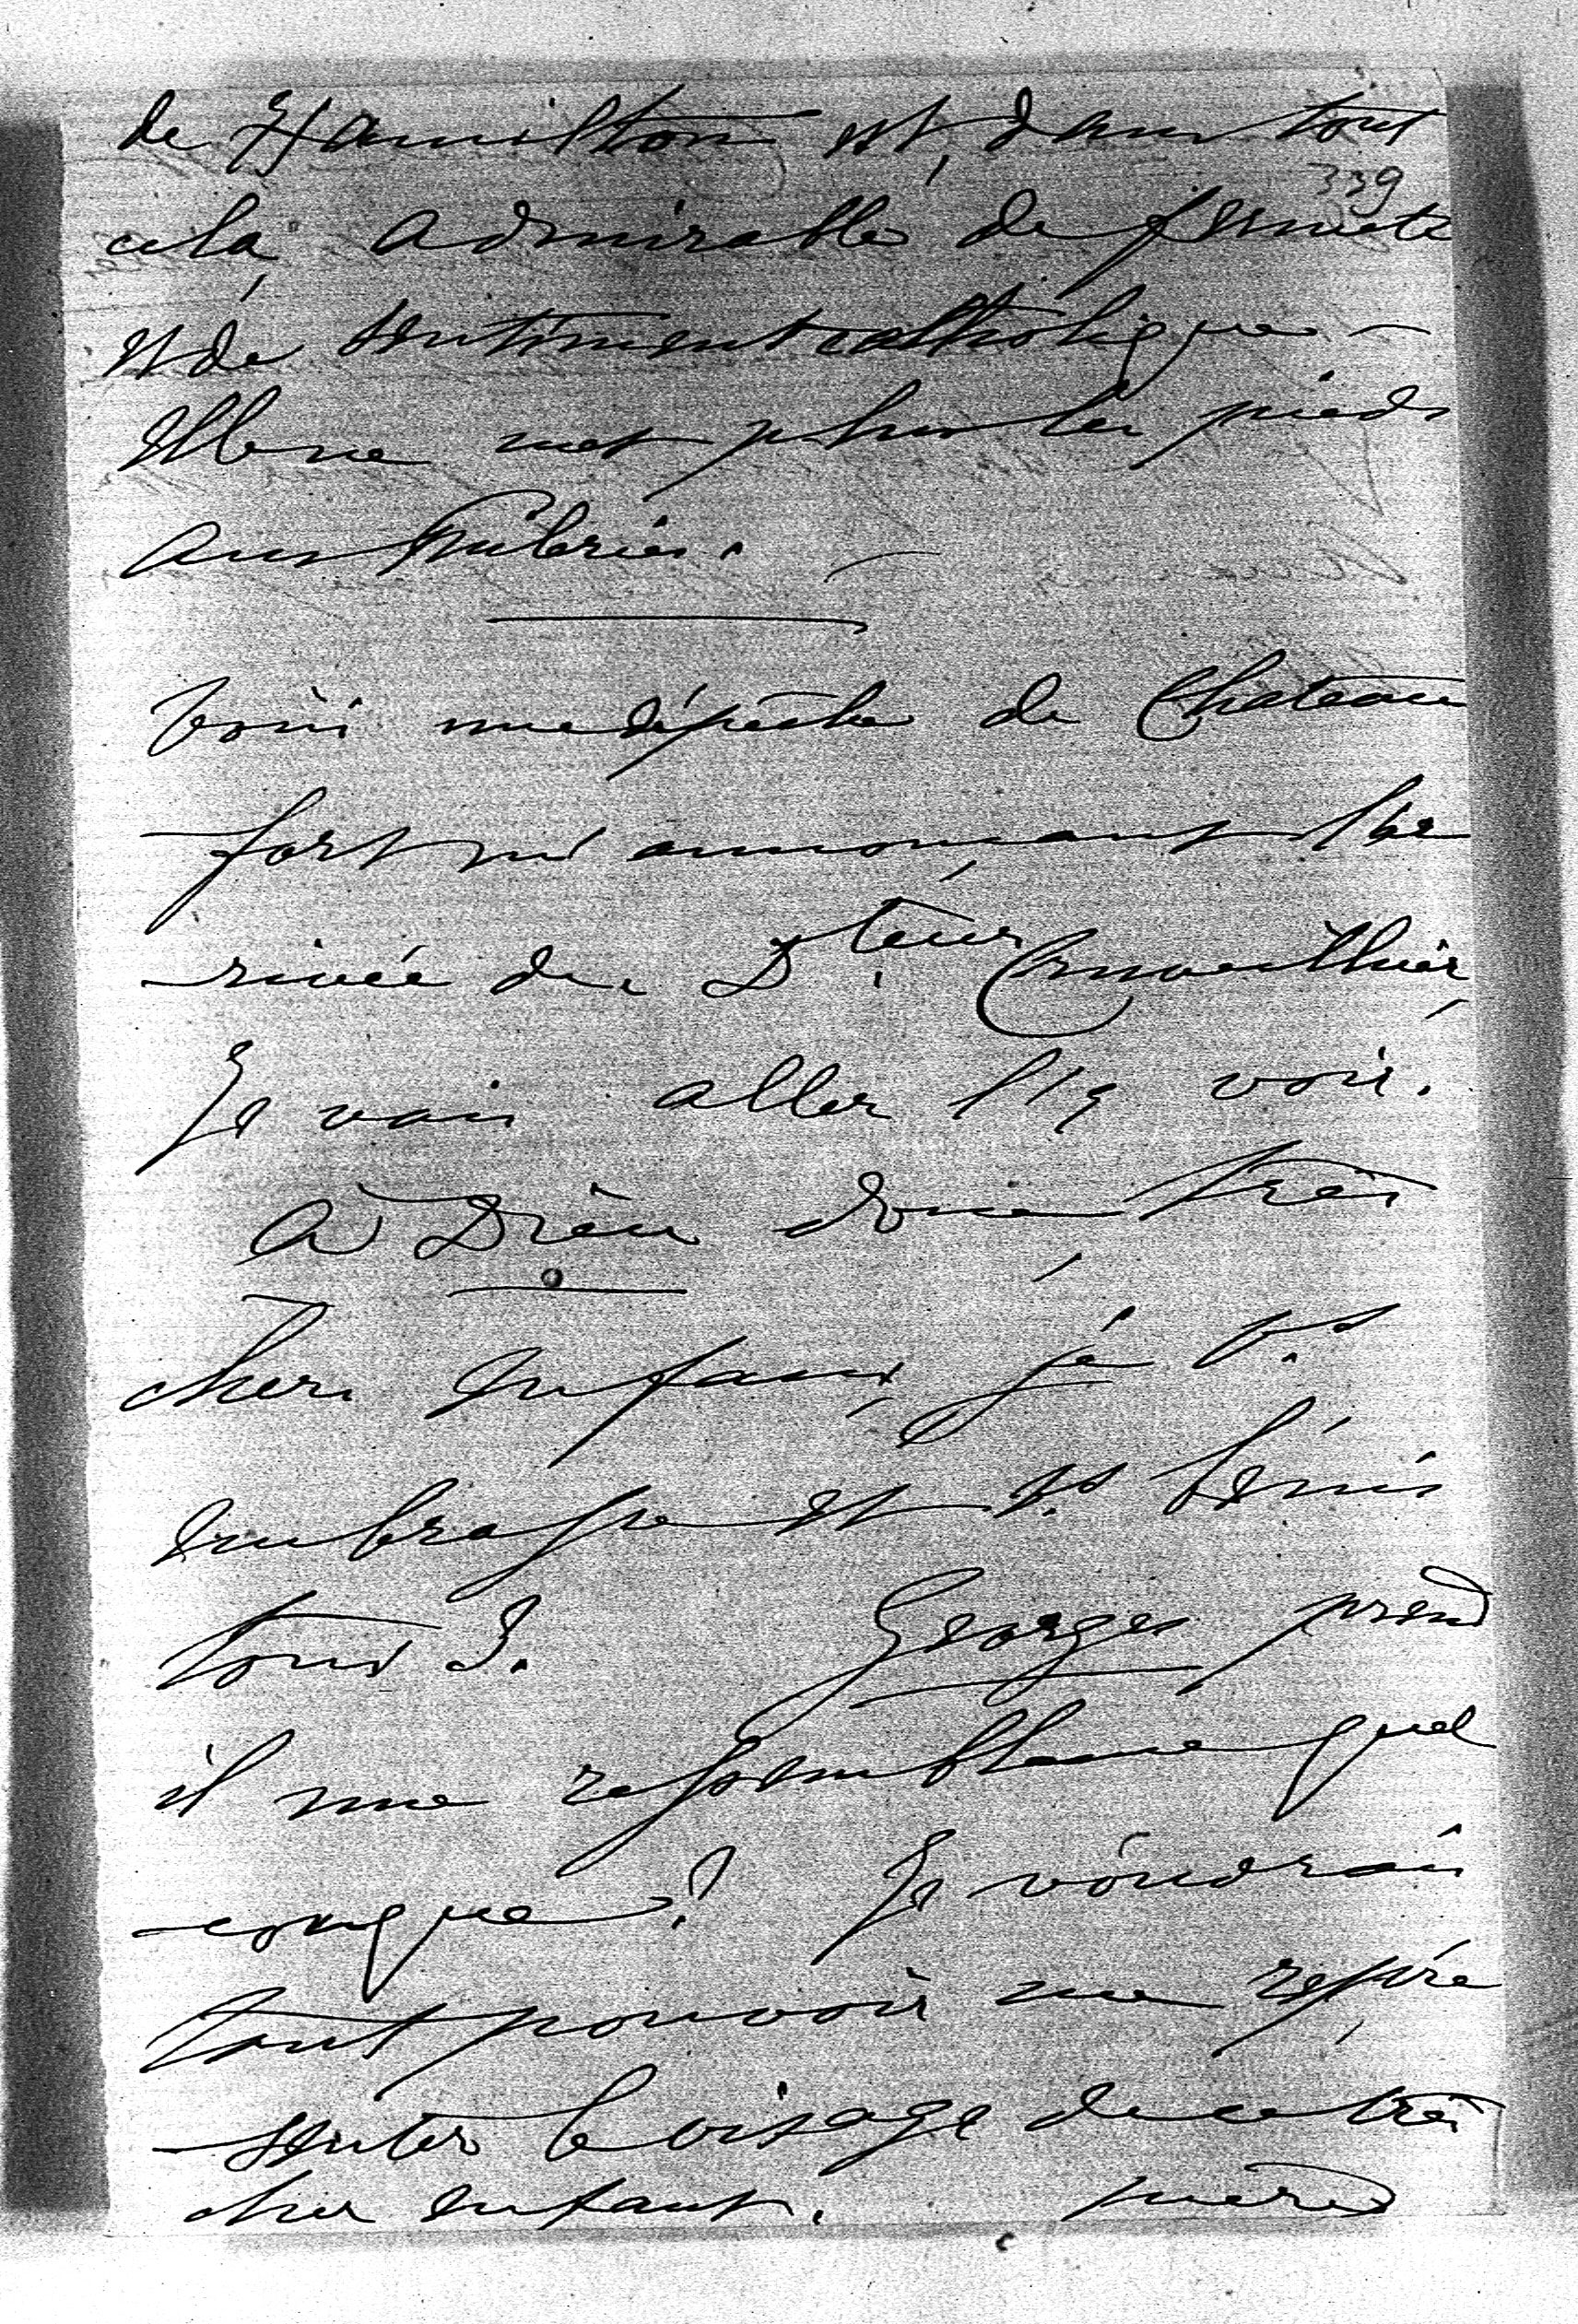 de Hamilton est, dans tout
339
cela, admirable de fermeté
et de sentiment catholique –
Elle ne met plus les pieds
aux Tuileries. –
Voici une dépêche de Chateau
fort m'annonçant l'ar
rivée du Dteur Cruveilhier,
Je vais aller l'y voir.
à Dieu donc, très
chers enfans, je vs
embrasse et vs bénis
tous 3. Georges prend
il une ressemblance quel
conque? Je voudrais
tant pouvoir me repré
senter le visage de ce très
cher enfant.